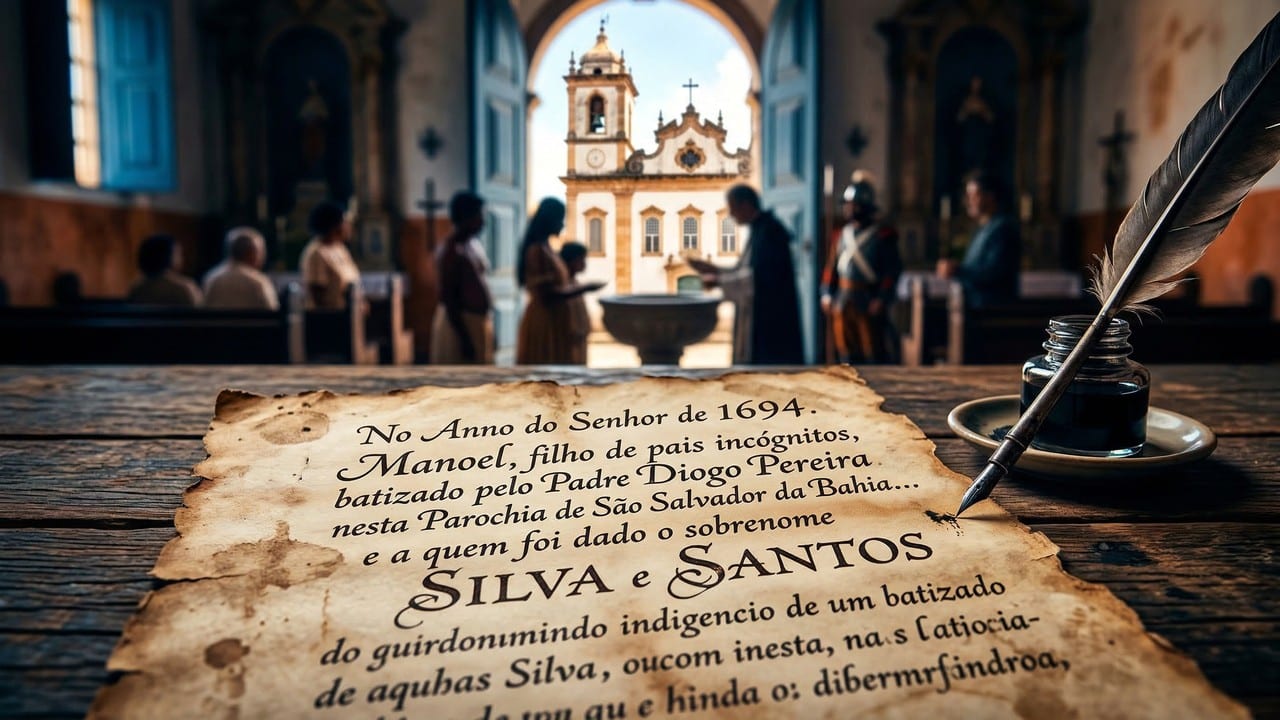 No Anno do Senhor de 1694.
Manoel, filho de pais incógnitos,
batizado pelo Padre Diogo Pereira
nesta Parochia de São Salvador da Bahia...
e a quem foi dado o sobrenome
SILVA e SANTOS
do guirdonumindo indigencio de um batizado
de aquhas Silva, oucom inesta,